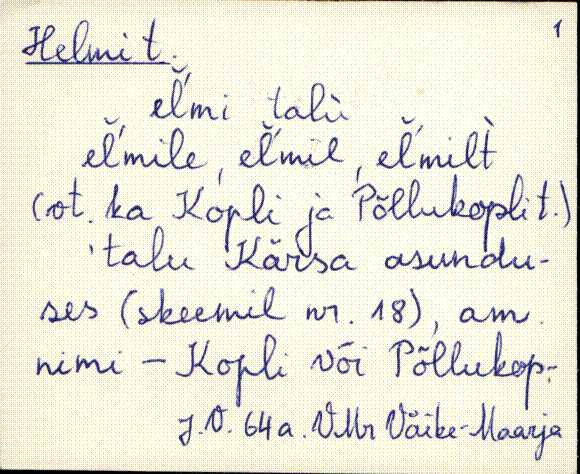 Helmi t. 1
el̆´mi talù
el̆´mile, el̆´mil, el̆´milt̀
(vt. ka Kopli ja Põllukoplit.)
'talu Kärsa asundu-
ses (skeemil nr. 18), am.
nimi – Kopli või Põllukop-
J.V. 64a. VMr Väike-Maarja